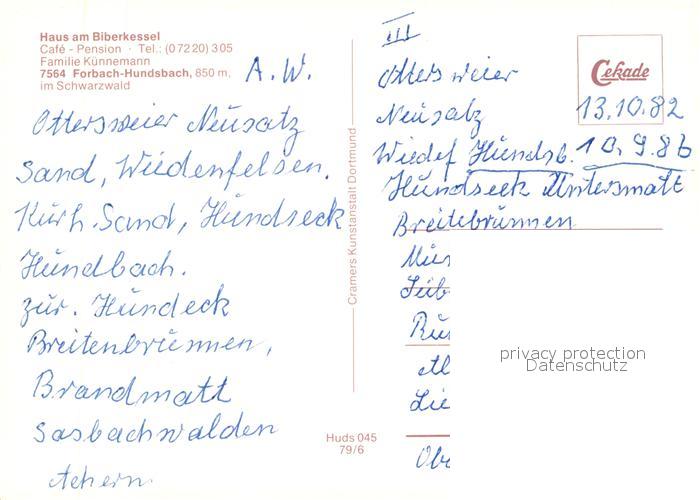 Haus am Biberkessel
Café - Pension · Tel.: (07220) 305
Familie Künnemann
7564 Forbach-Hundsbach, 850 m,
im Schwarzwald
A.W.
Ottersweier Neusatz
Sand, Wiedenfelsen.
Kurh. Sand, Hundseck
Hundbach.
zur. Hundeck
Breitenbrünnen,
Brandmatt
Sasbachwalden
Achern
Cramers Kunstanstalt Dortmund
Huds 045
79/6
III
Cekade
Ottersweier
Neusatz 13.10.82
Wiedf Hundsb. 10.9.86
Hundseck Untersmatt
Breitebrünnen
privacy protection
Datenschutz